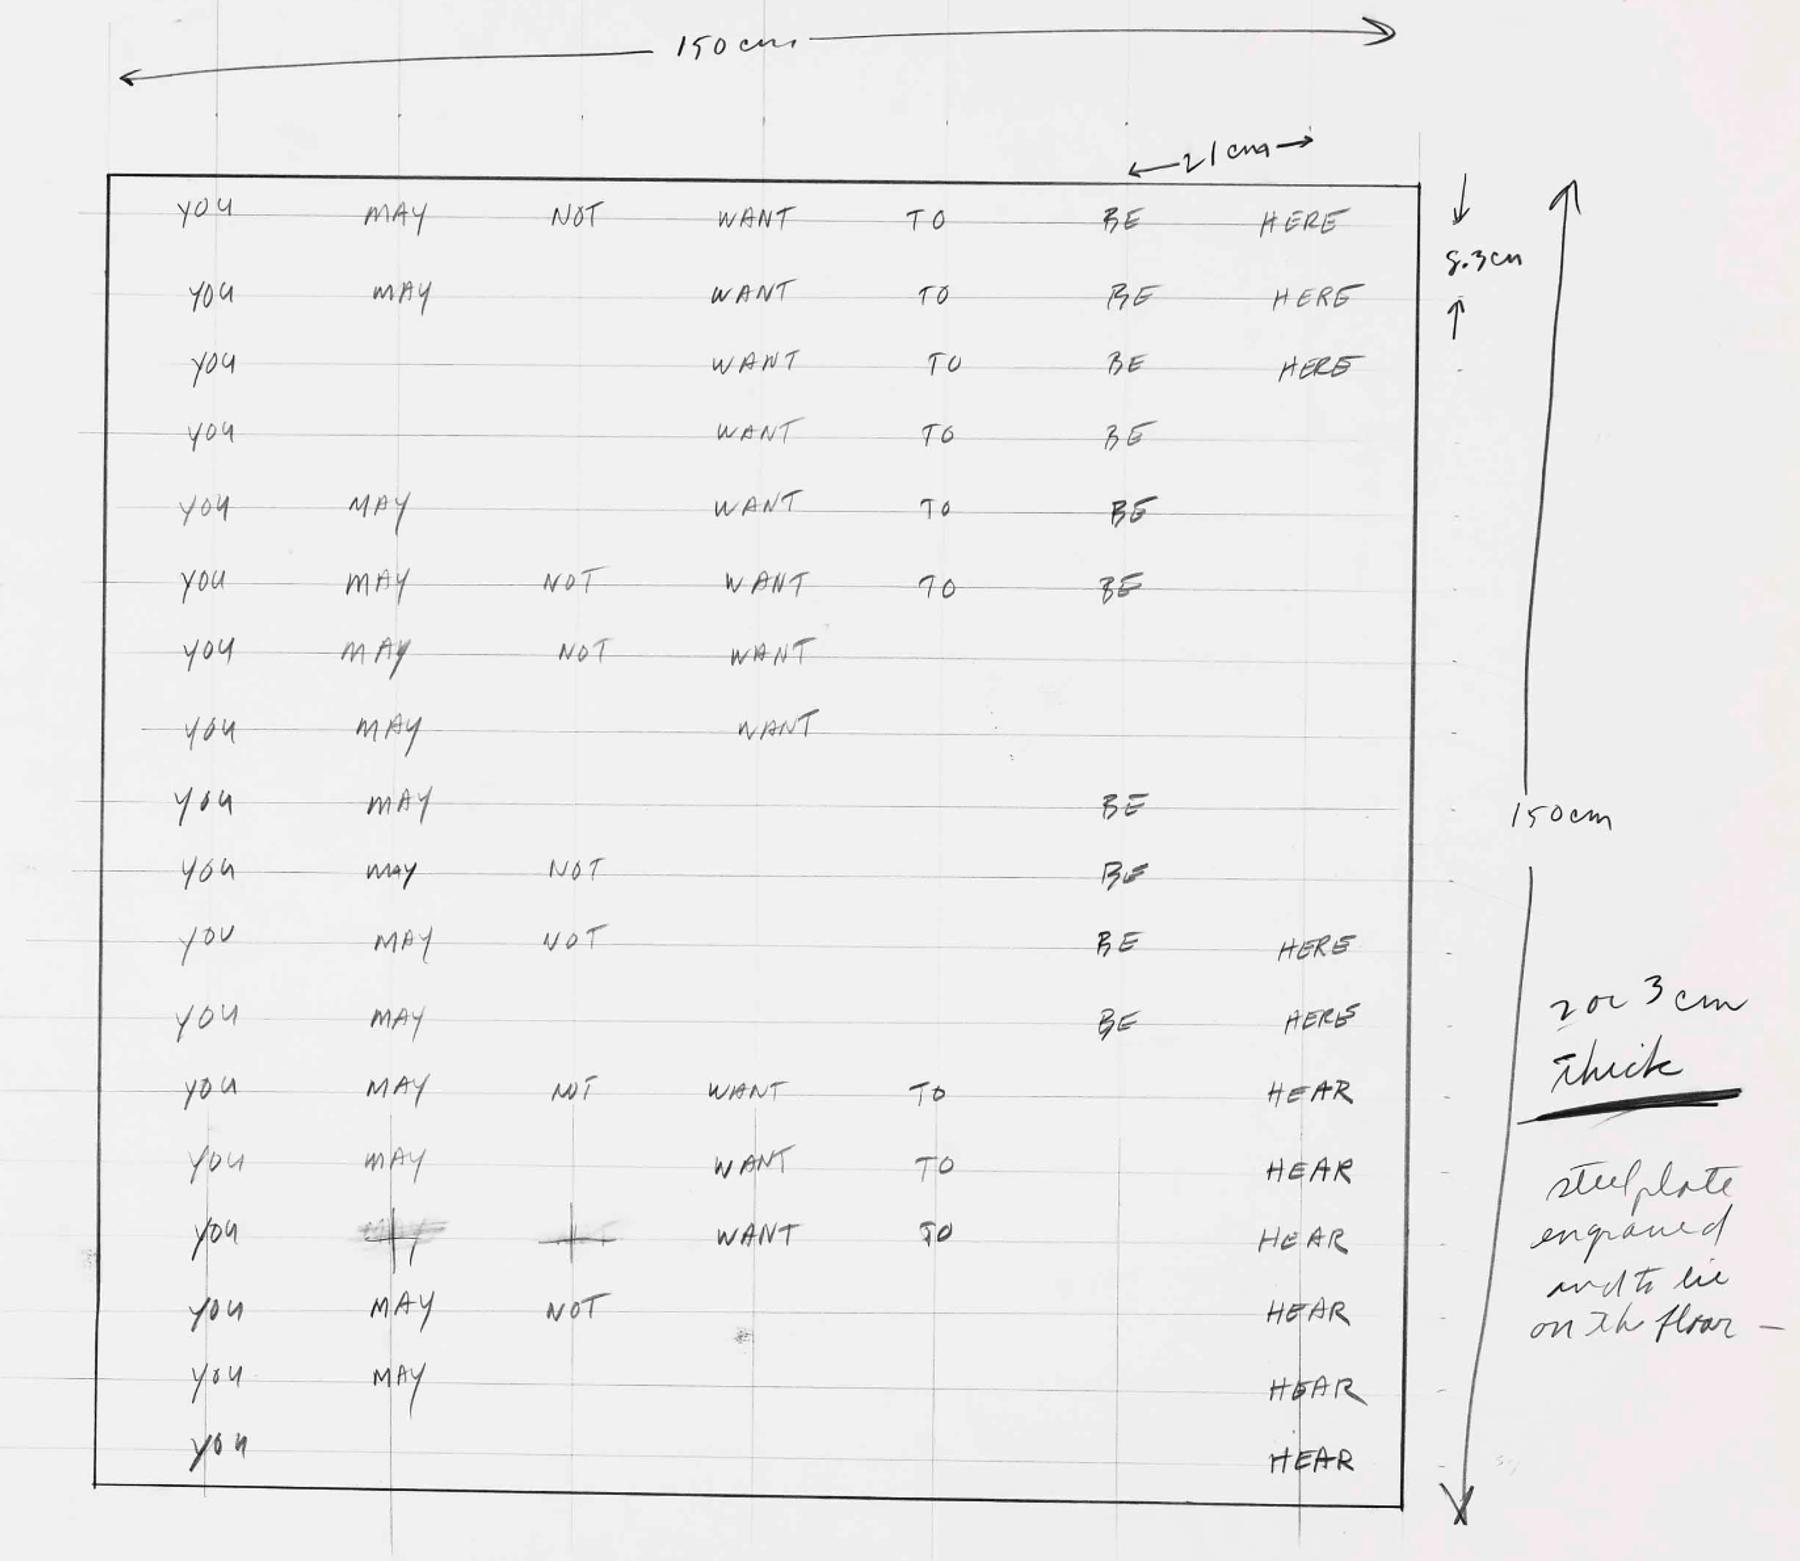 150 cm
21 cm
YOU MAY NOT WANT TO BE HERE
8.3 cm
YOU MAY WANT TO BE HERE
YOU WANT TO BE HERE
YOU WANT TO BE
YOU MAY WANT TO BE
YOU MAY NOT WANT TO BE
YOU MAY NOT WANT
YOU MAY WANT
YOU MAY BE
150 cm
YOU MAY NOT BE
YOU MAY NOT BE HERE
YOU MAY BE HERE
YOU MAY NOT WANT TO HEAR
YOU MAY WANT TO HEAR
YOU WANT TO HEAR
YOU MAY NOT HEAR
YOU MAY HEAR
YOU HEAR
2 or 3 cm
thick
steel plate
engraved
and to lie
on the floor —